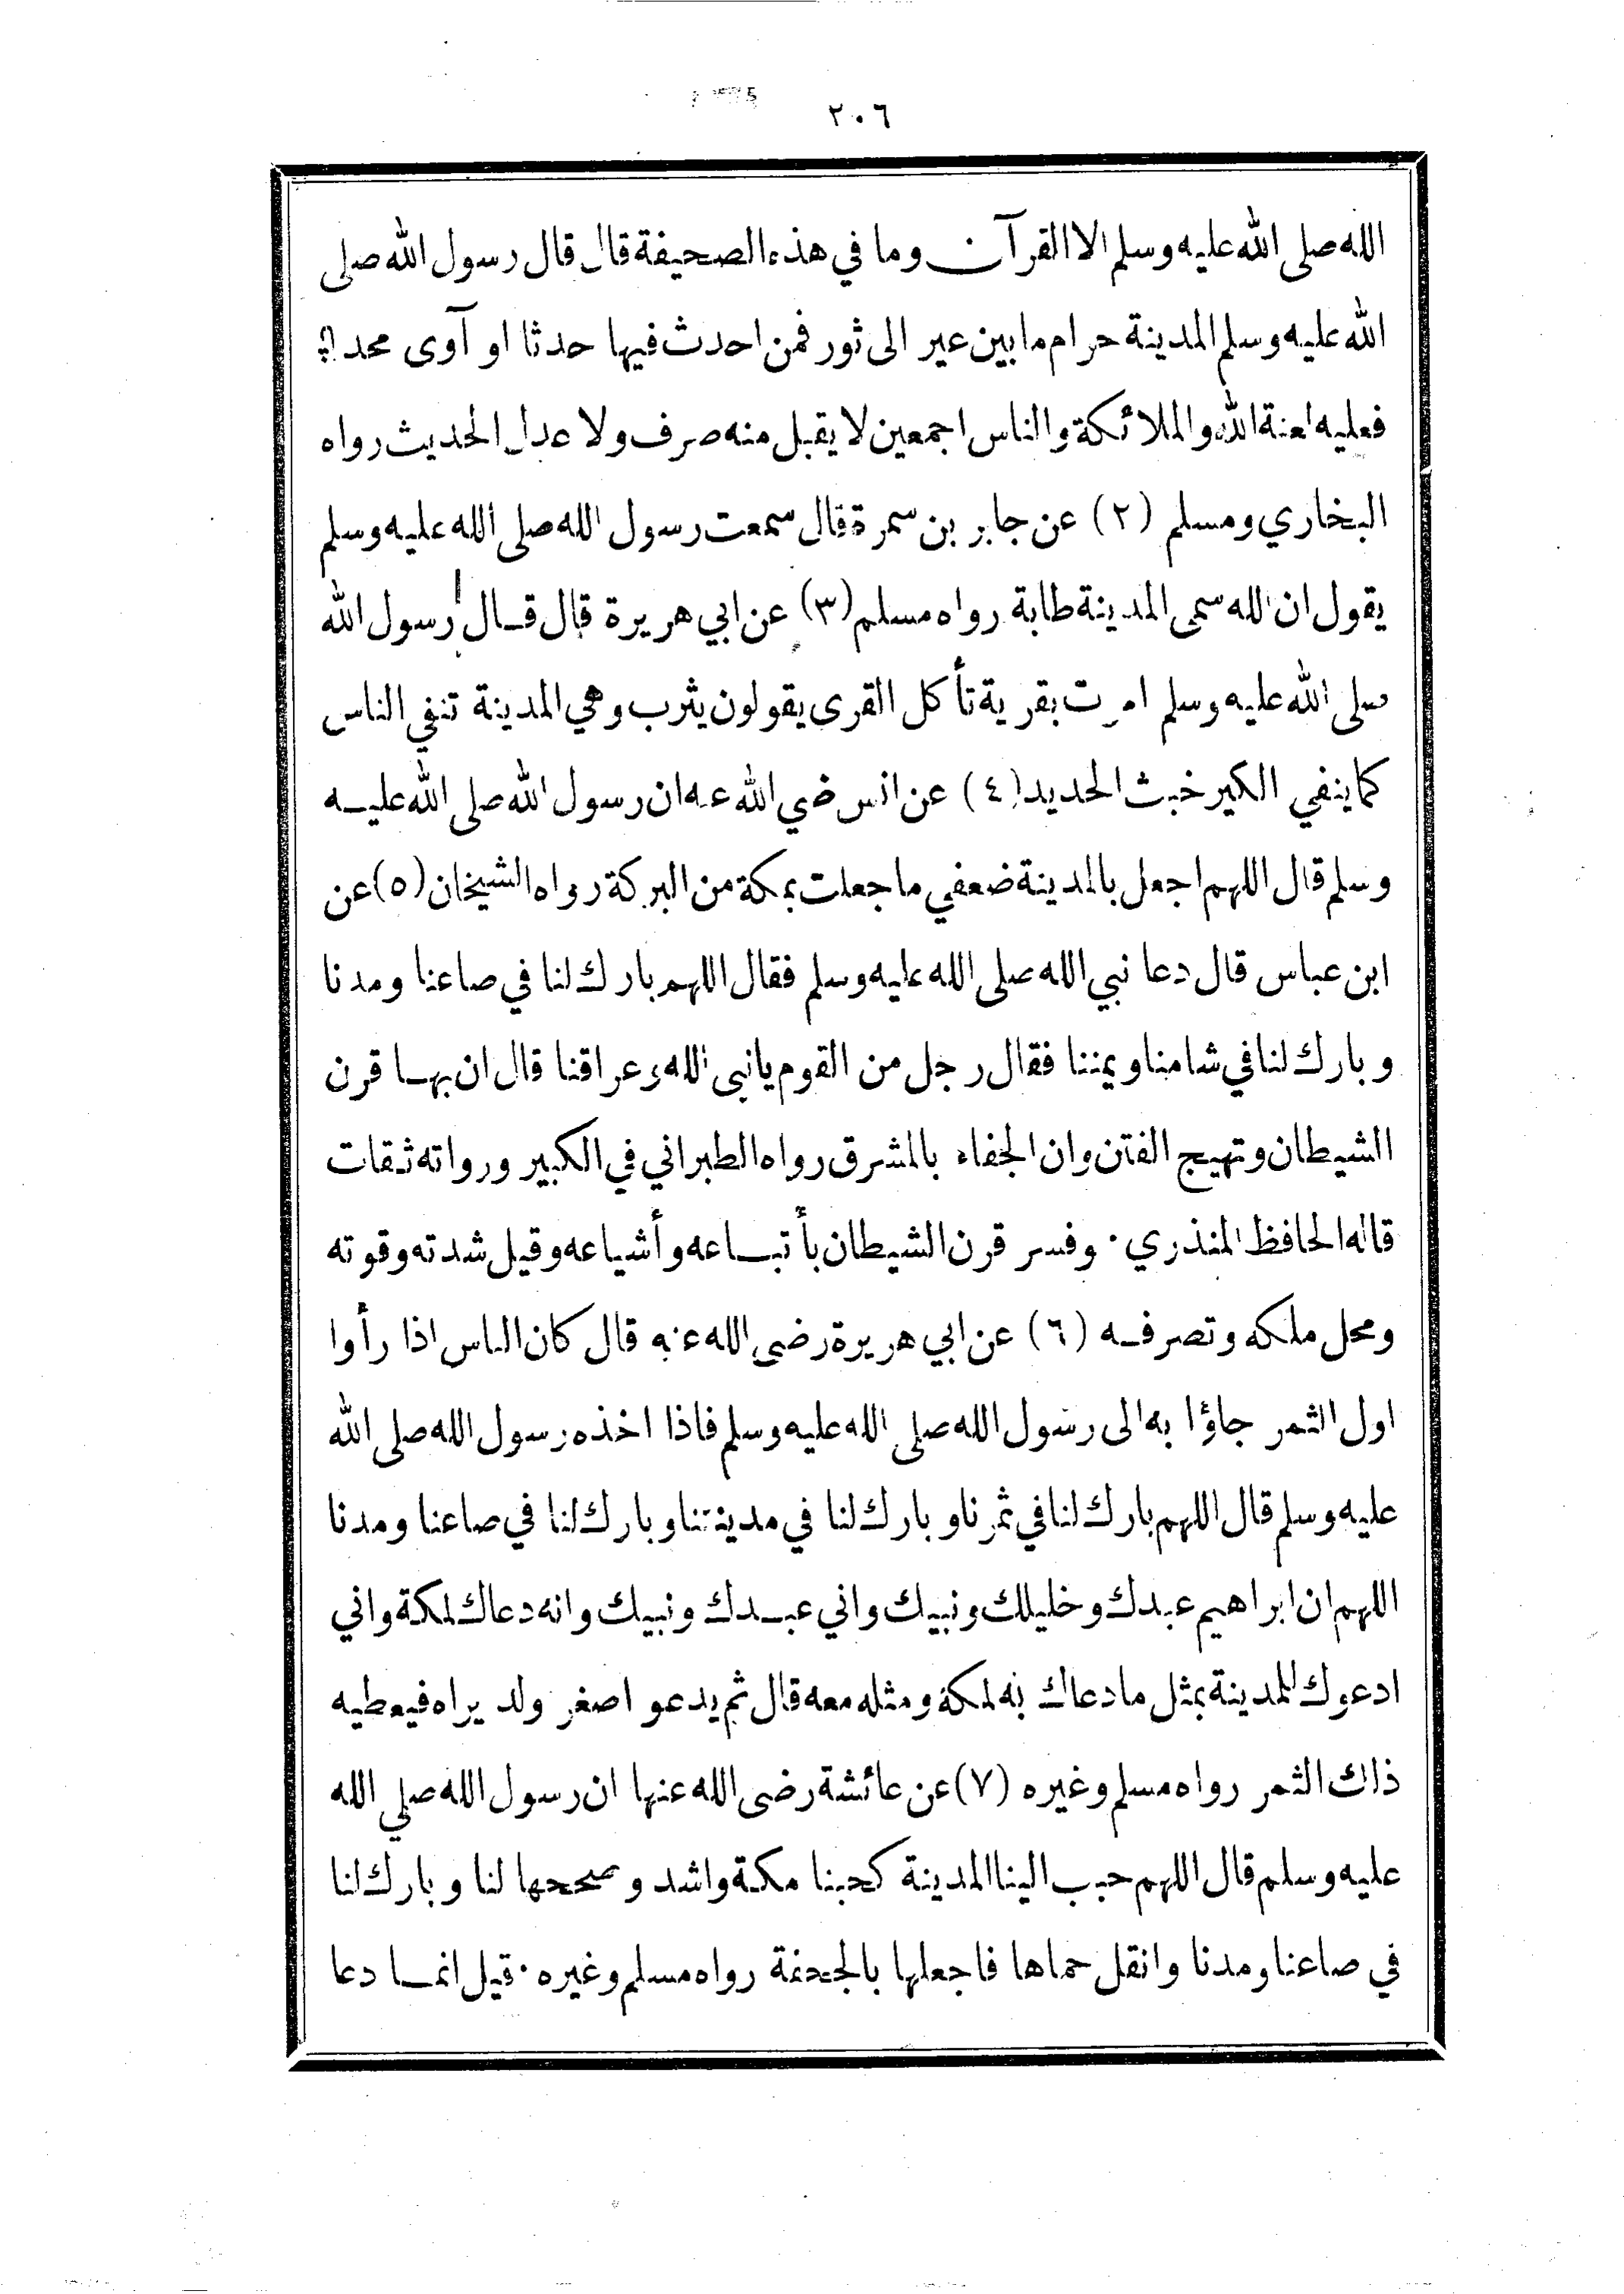 ٢٠٦
الله صلى الله عليه وسلم الا القرآن وما في هذه الصحيفة قال قال رسول الله صلى
الله عليه وسلم المدينة حرام ما بين عير الى ثور فمن احدث فيها حدثا او آوى محدثا
فعليه لعنة الله والملائكة والناس اجمعين لا يقبل منه صرف ولا عدل الحديث رواه
البخاري ومسلم (٢) عن جابر بن سمرة قال سمعت رسول الله صلى الله عليه وسلم
يقول ان الله سمى المدينة طابة رواه مسلم (٣) عن ابي هريرة قال قال رسول الله
صلى الله عليه وسلم امرت بقرية تأكل القرى يقولون يثرب وهي المدينة تنفي الناس
كما ينفي الكير خبث الحديد (٤) عن انس ضي الله عه ان رسول الله صلى الله عليه
وسلم قال اللهم اجعل بالمدينة ضعفي ما جعلت بمكة من البركة رواه الشيخان (٥) عن
ابن عباس قال دعا نبي الله صلى الله عليه وسلم فقال اللهم بارك لنا في صاعنا ومدنا
وبارك لنا في شامنا ويمننا فقال رجل من القوم يا نبى الله وعراقنا قال ان بها قرن
الشيطان وتهيج الفتن وان الجفاء بالمشرق رواه الطبراني في الكبير ورواته ثقات
قاله الحافظ المنذري . وفسر قرن الشيطان بأتباعه وأشياعه وقيل شدته وقوته
ومحل ملكه وتصرفه (٦) عن ابي هريرة رضى الله عنه قال كان الناس اذا رأوا
اول الثمر جاؤا به الى رسول الله صلى الله عليه وسلم فاذا اخذه رسول الله صلى الله
عليه وسلم قال اللهم بارك لنا في ثمرنا وبارك لنا في مدينتنا وبارك لنا في صاعنا ومدنا
اللهم ان ابراهيم عبدك وخليلك ونبيك واني عبدك ونبيك وانه دعاك لمكة واني
ادعوك للمدينة بمثل ما دعاك به لمكة ومثله معه قال ثم يدعو اصغر ولد يراه فيعطيه
ذاك الثمر رواه مسلم وغيره (٧) عن عائشة رضى الله عنها ان رسول الله صلي الله
عليه وسلم قال اللهم حبب الينا المدينة كحبنا مكة واشد وصححها لنا وبارك لنا
في صاعنا ومدنا وانقل حماها فاجعلها بالجحفة رواه مسلم وغيره . قيل انما دعا